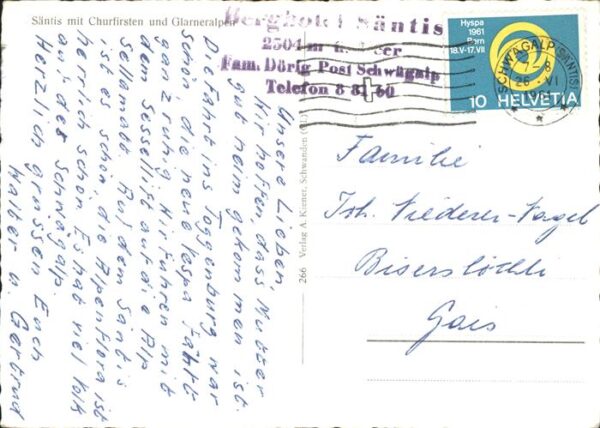 Säntis mit Churfirsten und Glarneralpen
Berghotel Säntis
2504 m ü. Meer
Fam. Dörig Post Schwägalp
Telefon 8 81 60
Hyspa
1961
Bern
18.V-17.VII
10 HELVETIA
SCHWÄGALP (SÄNTIS)
8
26 VI
Unsere Lieben,
Wir hoffen dass Mutter
gut heim gekommen ist.
Die Fahrt ins Toggenburg war
schön, die neue Vespa fährt
ganz ruhig. Wir fuhren mit
dem Sessellift auf die Alp
Sellamatt. Auf dem Säntis
ist es schön, die Alpenflora ist
herrlich schön. Es hat viel Volk
auf der Schwägalp.
Herzlich grüssen Euch
Walter u. Gertrud
266 Verlag A. Kiener, Schwanden (Gl.)
Familie
Joh. Niederer-Vogel
Gais